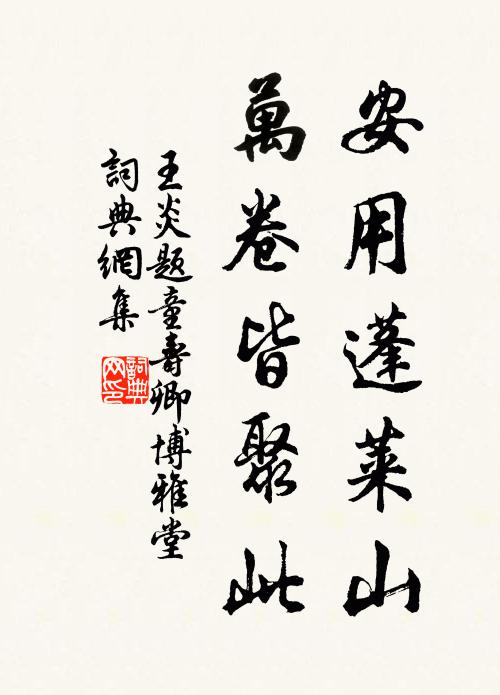 安用蓬萊山
萬卷皆聚此
王炎题童壽卿博雅堂
詞典網集
詞典
网印